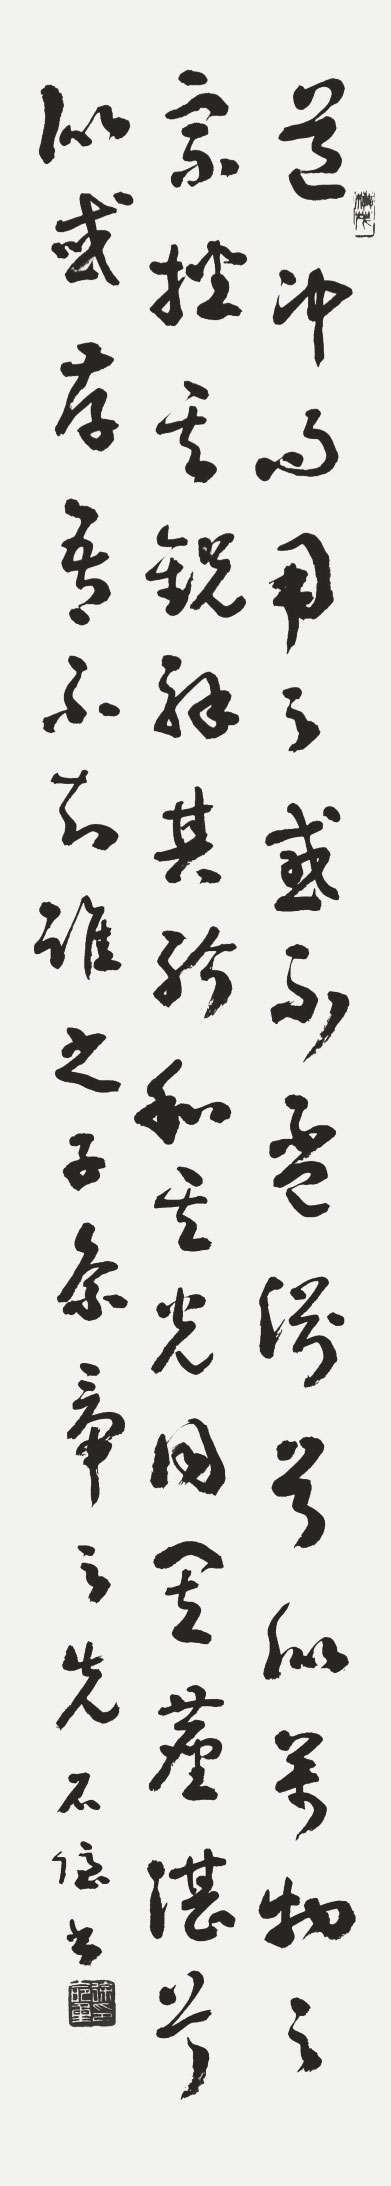 道冲而用之或不盈渊兮似万物之
宗挫其锐解其纷和其光同其尘湛兮
似或存吾不知谁之子象帝之先石隐书